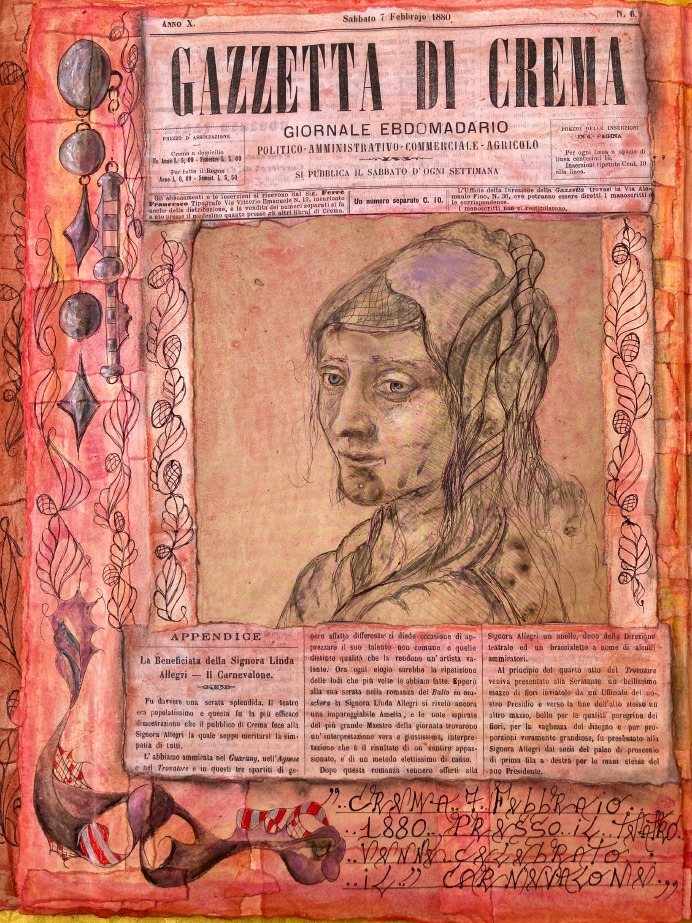 ANNO X.
Sabbato 7 Febbrajo 1880
N. 6.
GAZZETTA DI CREMA
GIORNALE EBDOMADARIO
POLITICO-AMMINISTRATIVO-COMMERCIALE-AGRICOLO
SI PUBBLICA IL SABBATO D'OGNI SETTIMANA
PREZZO D'ASSOCIAZIONE
Crema a domicilio
Un Anno L. 8, 00 - Semestre L. 5, 00
Per tutto il Regno
Anno L. 6, 00 - Semest. L. 3, 50
PREZZO DELLE INSERZIONI
IN 4.a PAGINA
Per ogni linea o spazio di
linea centesimi 15.
Inserzioni ripetute Cent. 10
alla linea.
Gli abbonamenti e le inserzioni si ricevono dal Sig. Ferrè
Francesco Tipografo Via Vittorio Emanuele N. 13, incaricato
anche della distribuzione, e la vendita dei numeri separati si fa
a lo presso il medesimo quanto presso gli altri librai di Crema.
Un numero separato C. 10.
L'Ufficio della Direzione della Gazzetta trovasi in Via
Fino, N. 36, ove potranno essere diretti i manoscritti
le corrispondenze.
I manoscritti non si restituiscono.
APPENDICE
La Beneficiata della Signora Linda
Allegri — Il Carnevalone.
Fu davvero una serata splendida. Il teatro
era popolatissimo e questa fu la più efficace
dimostrazione che il pubblico di Crema fece alla
Signora Allegri la quale seppe meritarsi la sim-
patia di tutti.
L'abbiamo ammirata nel Guarany, nell'Agnese
e nel Trovatore e in questi tre spartiti di ge-
nere affatto differente ci diede occasione di ap-
prezzare il suo talento non comune e quelle
distinte qualità che la rendono un'artista va-
lente. Ora ogni elogio sarebbe la ripetizione
delle lodi che più volte le abbiam fatte. Eppero
alla sua serata nella romanza del Ballo in ma-
schera la Signora Allegri si rivelò ancora
una impareggiabile Amelia, e le note ispirate
del più grande Maestro della giornata trovarono
un'interpretazione vera e giustissima, interpre-
tazione che è il risultato di un sentire appas-
sionato, e di un metodo elettissimo di canto.
Dopo questa romanza vennero offerti alla
Signora Allegri un anello, dono della Direzione
teatrale ed un braccialetto a nome di alcuni
ammiratori.
Al principio del quarto atto del Trovatore
veniva presentato alla Seratante un bellissimo
mazzo di fiori inviatole da un Ufficiale del no-
stro Presidio e verso la fine dell'atto stesso un
altro mazzo, bello per le qualità peregrine dei
fiori, per la vaghezza del disegno e per pro-
porzioni veramente grandiose, fu presentato alla
Signora Allegri dai socii del palco di proscenio
di prima fila a destra per le mani stesse del
suo Presidente.
".. CREMA 7 FEBBRAIO..
..1880.. PRESSO IL TEATRO..
..VENNE CELEBRATO..
..IL" CARNEVALONE..,,